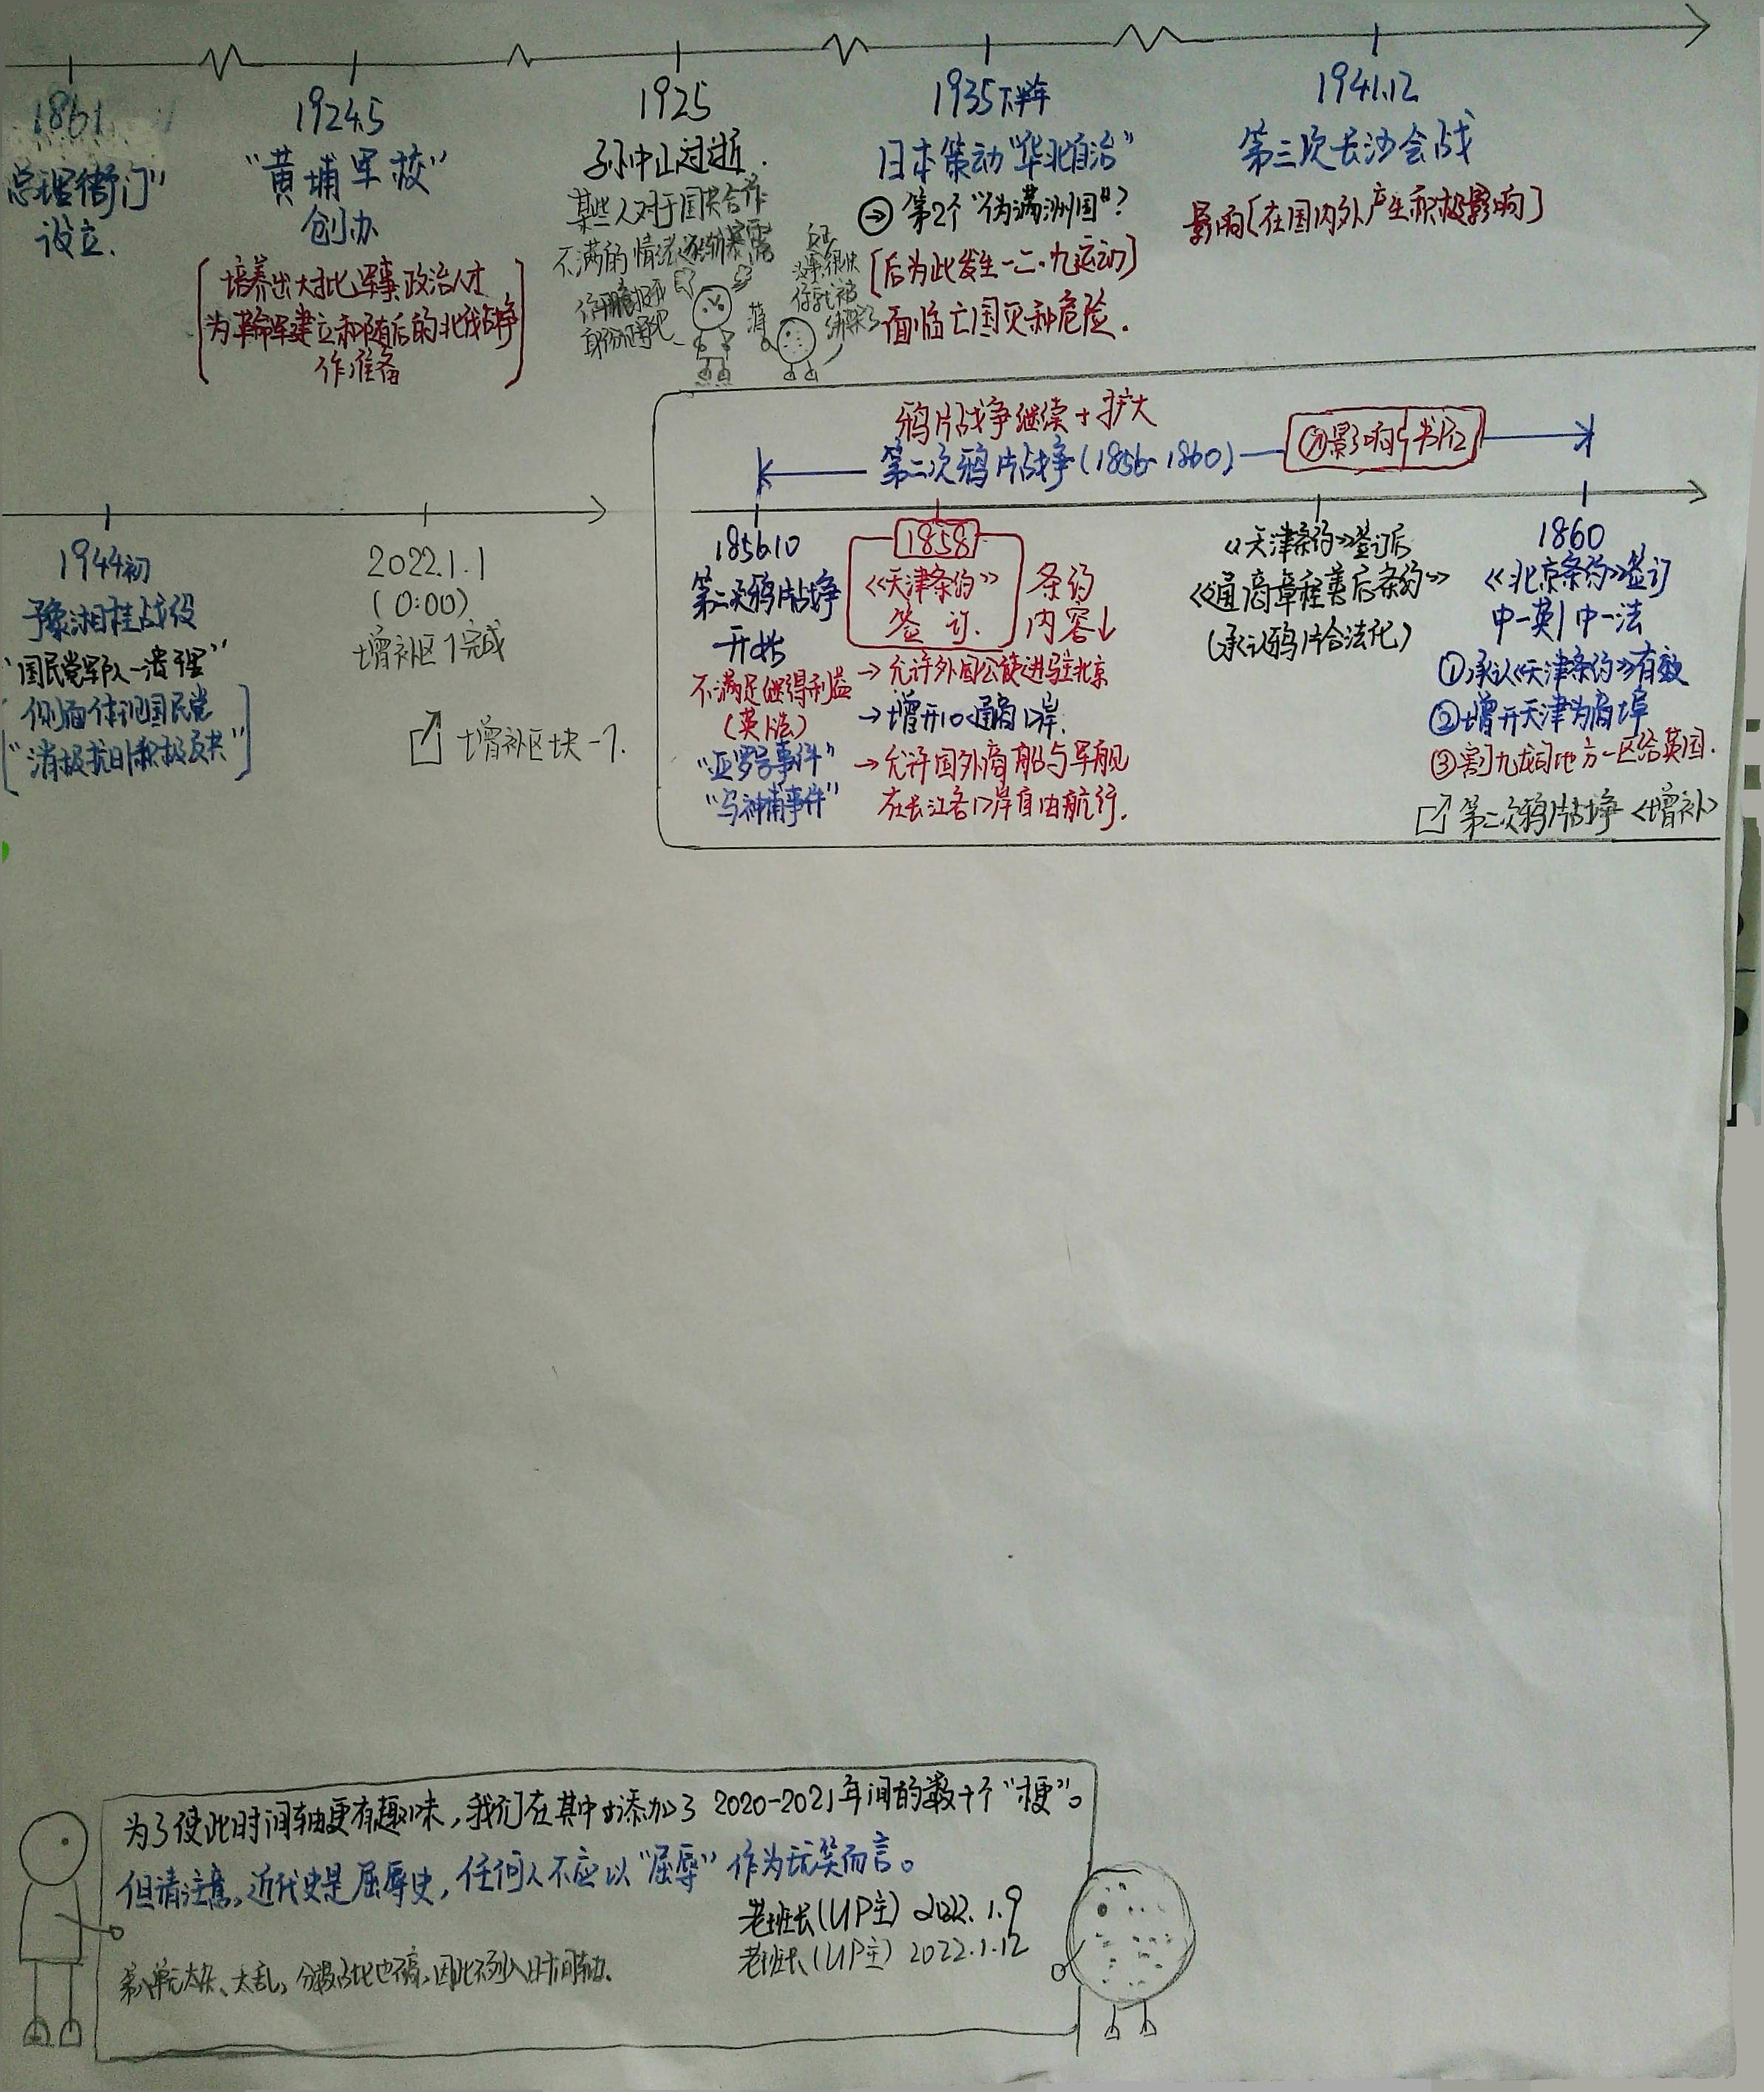 1861
"总理衙门"
设立.
1924.5
"黄埔军校"
创办
培养出大批军事政治人才
为革命军建立和随后的北伐战争
作准备
1925
孙中山过逝.
某些人对于国共合作
不满的情绪逐渐暴露
1935下半年
日本策动"华北自治"
第2个"伪满洲国"?
[后为此发生一二·九运动]
面临亡国灭种危险.
1941.12
第三次长沙会战
影响[在国内外产生积极影响]
1944初
豫湘桂战役
"国民党军队一溃千里"
侧面体现国民党
"消极抗日积极反共"
2022.1.1
(0:00)
增补区1完成
增补区块-1.
鸦片战争继续+扩大
第二次鸦片战争(1856-1860)
影响 书P12
1856.10
第二次鸦片战争
开始
不满足继得利益
(英法)
"亚罗号事件"
"马神甫事件"
1858
《天津条约》
签订.
条约
内容↓
→允许外国公使进驻北京
→增开10个通商口岸.
→允许国外商船与军舰
在长江各口岸自由航行.
《天津条约》签订后
《通商章程善后条约》
(承认鸦片合法化)
1860
《北京条约》签订
中-英|中-法
①承认《天津条约》有效
②增开天津为商埠
③割九龙司地方一区给英国.
第二次鸦片战争<增补>
为了使此时间轴更有趣味,我们在其中添加了2020-2021年间的数十个"梗"。
但请注意,近代史是屈辱史,任何人不应以"屈辱"作为玩笑而言。
老班长(UP主) 2022.1.9
老班长(UP主) 2022.1.12
第八单元太杂、太乱,分数占比也不高,因此不列入时间轴.